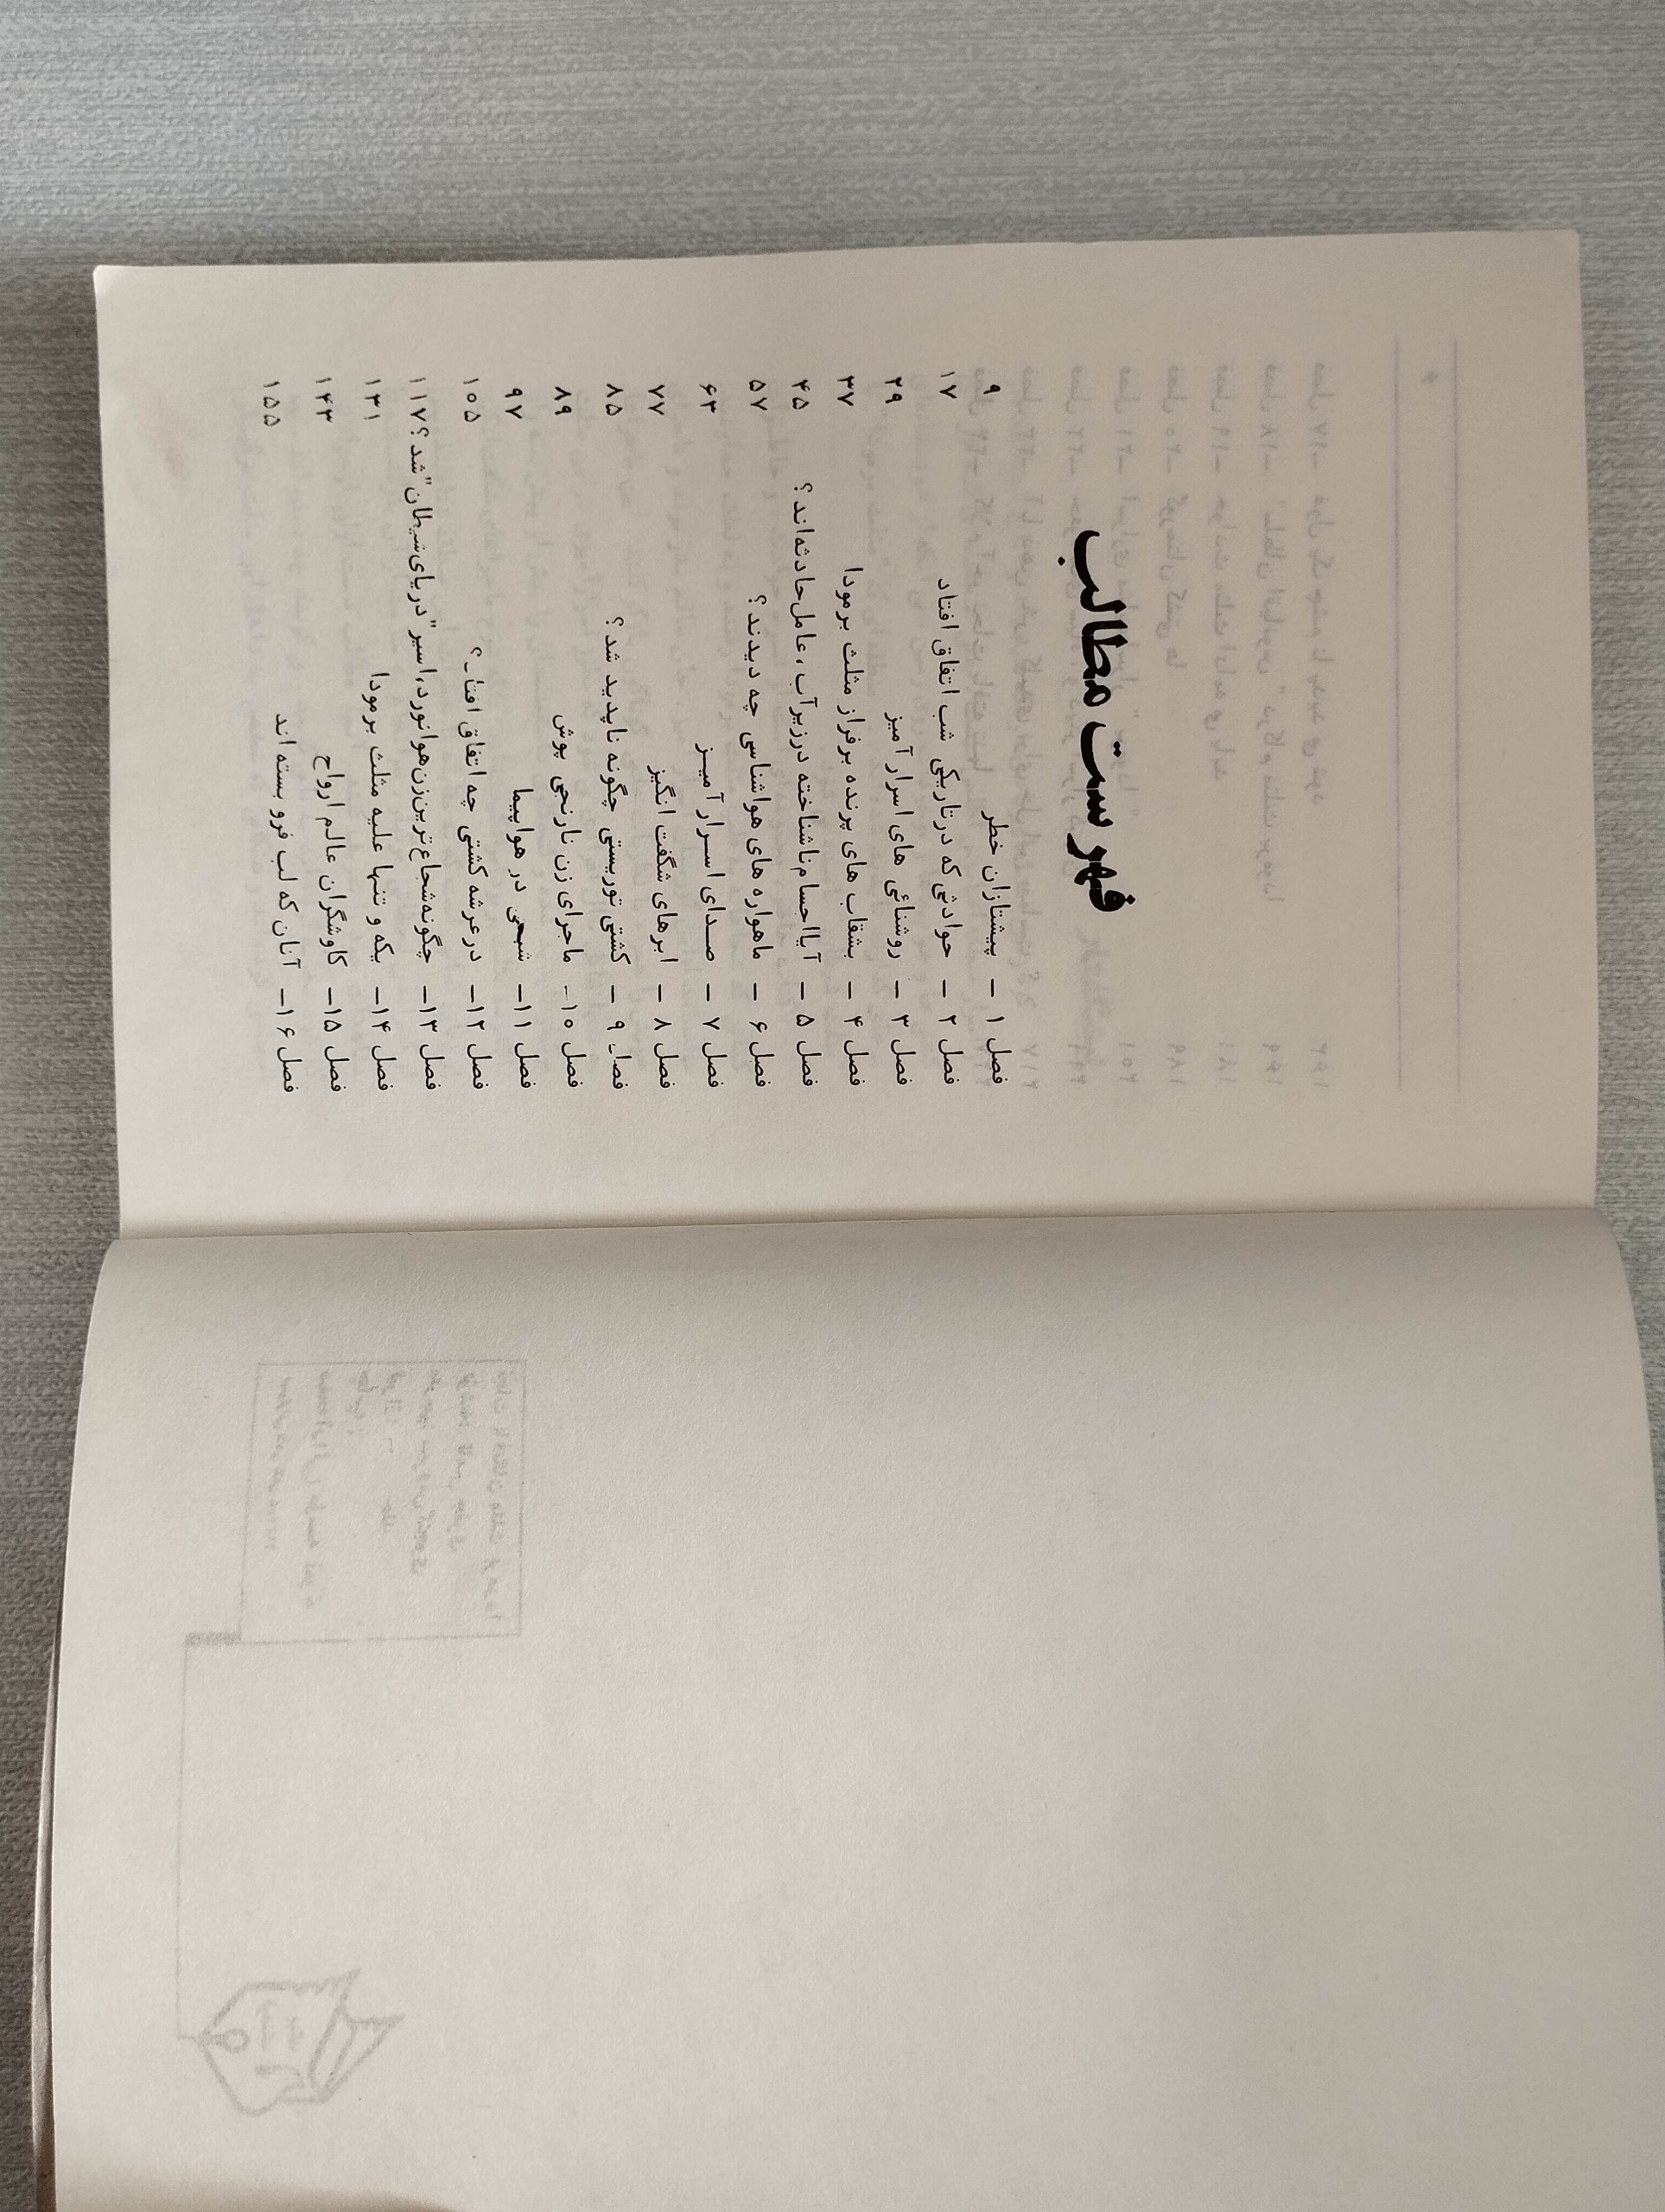 فهرست مطالب
فصل ۱ — پیشتازان خطر ۹
فصل ۲ — حوادثی که در تاریکی شب اتفاق افتاد ۱۷
فصل ۳ — روشنائی های اسرار آمیز ۲۹
فصل ۴ — بشقاب های پرنده بر فراز مثلث برمودا ۳۷
فصل ۵ — آیا اجسام ناشناخته در زیر آب، عامل حادثه اند؟ ۴۵
فصل ۶ — ماهواره های هواشناسی چه دیدند؟ ۵۷
فصل ۷ — صدای اسرار آمیز ۶۳
فصل ۸ — ابرهای شگفت انگیز ۷۷
فصل ۹ — کشتی توریستی چگونه ناپدید شد؟ ۸۵
فصل ۱۰- ماجرای زن نارنجی پوش ۸۹
فصل ۱۱— شبحی در هواپیما ۹۷
فصل ۱۲— در عرشه کشتی چه اتفاق افتاد؟ ۱۰۵
فصل ۱۳— چگونه شجاع ترین زن هوانورد، اسیر "دریای شیطان" شد؟ ۱۱۷
فصل ۱۴— یکه و تنها علیه مثلث برمودا ۱۳۱
فصل ۱۵— کاوشگران عالم ارواح ۱۴۳
فصل ۱۶— آنان که لب فرو بسته اند ۱۵۵